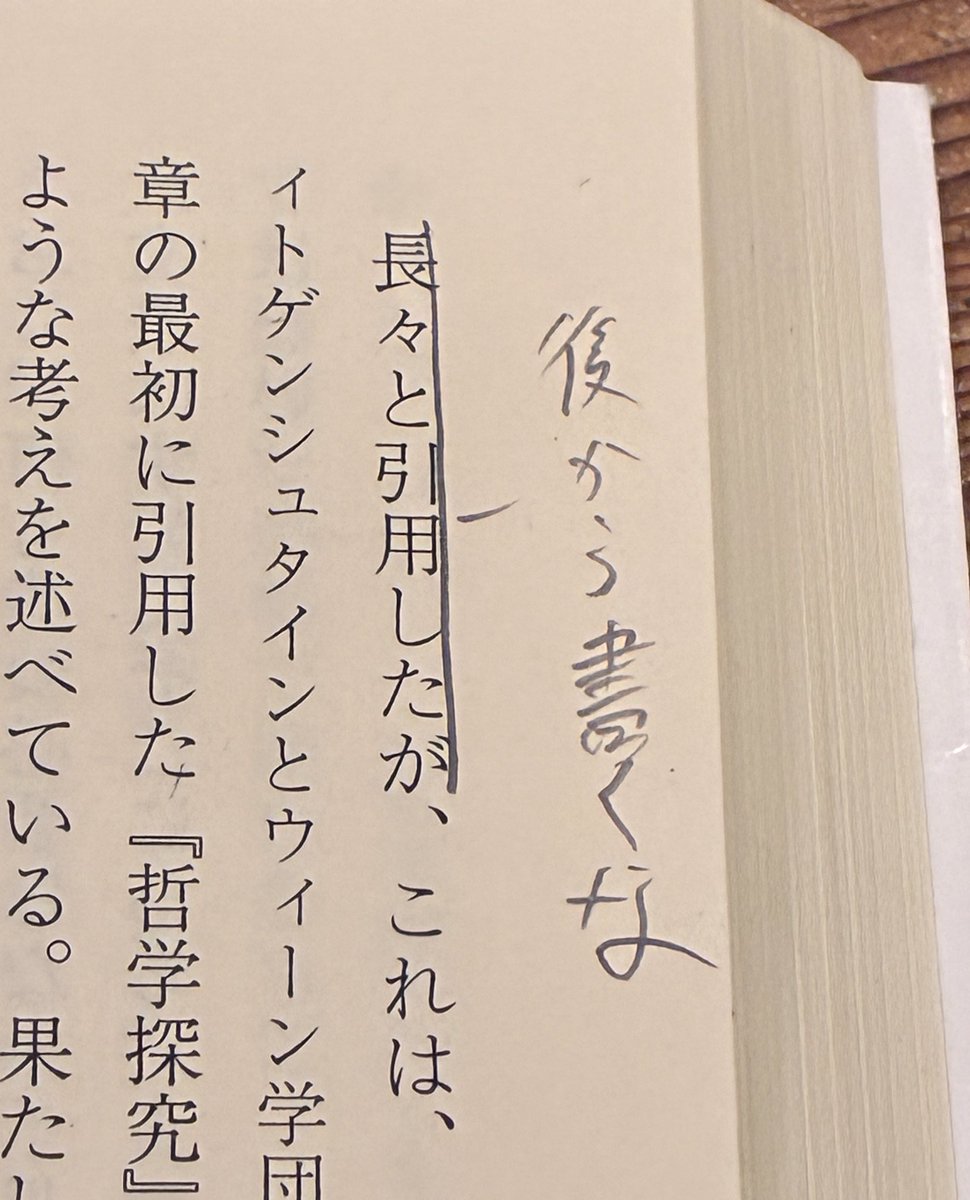 後から書くな
長々と引用したが、これは、
ィトゲンシュタインとウィーン学団
章の最初に引用した『哲学探究』
ような考えを述べている。果たし